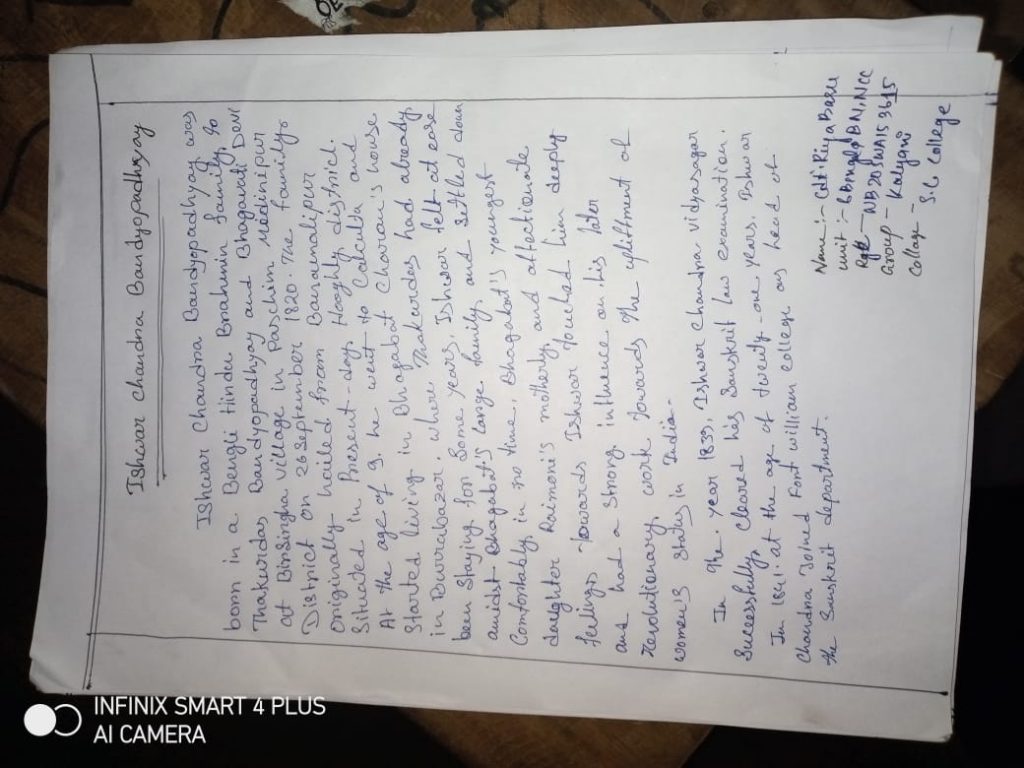 Ishwar Chandra Bandyopadhyay
Ishwar Chandra Bandyopadhyay was
born in a Bengli Hindu Brahmin family, to
Thakurdas Bandyopadhyay and Bhagavati Devi
at Birsingha village in Paschim Medinipur
District on 26 September 1820. The family
originally hailed from Banamalipur
Situated in Present-day, Hooghly district.
At the age of 9. he went to Calcutta and
Started living in Bhagabat Charan's house
in Burrabazar, where Thakurdas had already
been Staying for Some years. Ishwar felt at ease
amidst Bhagabat's large family and settled down
Comfortably, in no time. Bhagabat's youngest
daughter Raimoni's motherly and affectionate
feelings towards Ishwar touched him deeply
and had a strong influence on his later
revolutionary work towards the upliftment of
women's status in India.
In The year 1839, Ishwar Chandra Vidyasagar
Successfully cleared his Sanskrit law examination.
In 1841. at the age of twenty-one years. Ishwar
Chandra Joined Fort william college as head of
the Sanskrit department.
Name :- Cdt Riya Basu
unit :- 8 Bengal BN, NCC
NB20SWA153615
Group - Kalyani
Collage - S.C College
INFINIX SMART 4 PLUS
AI CAMERA